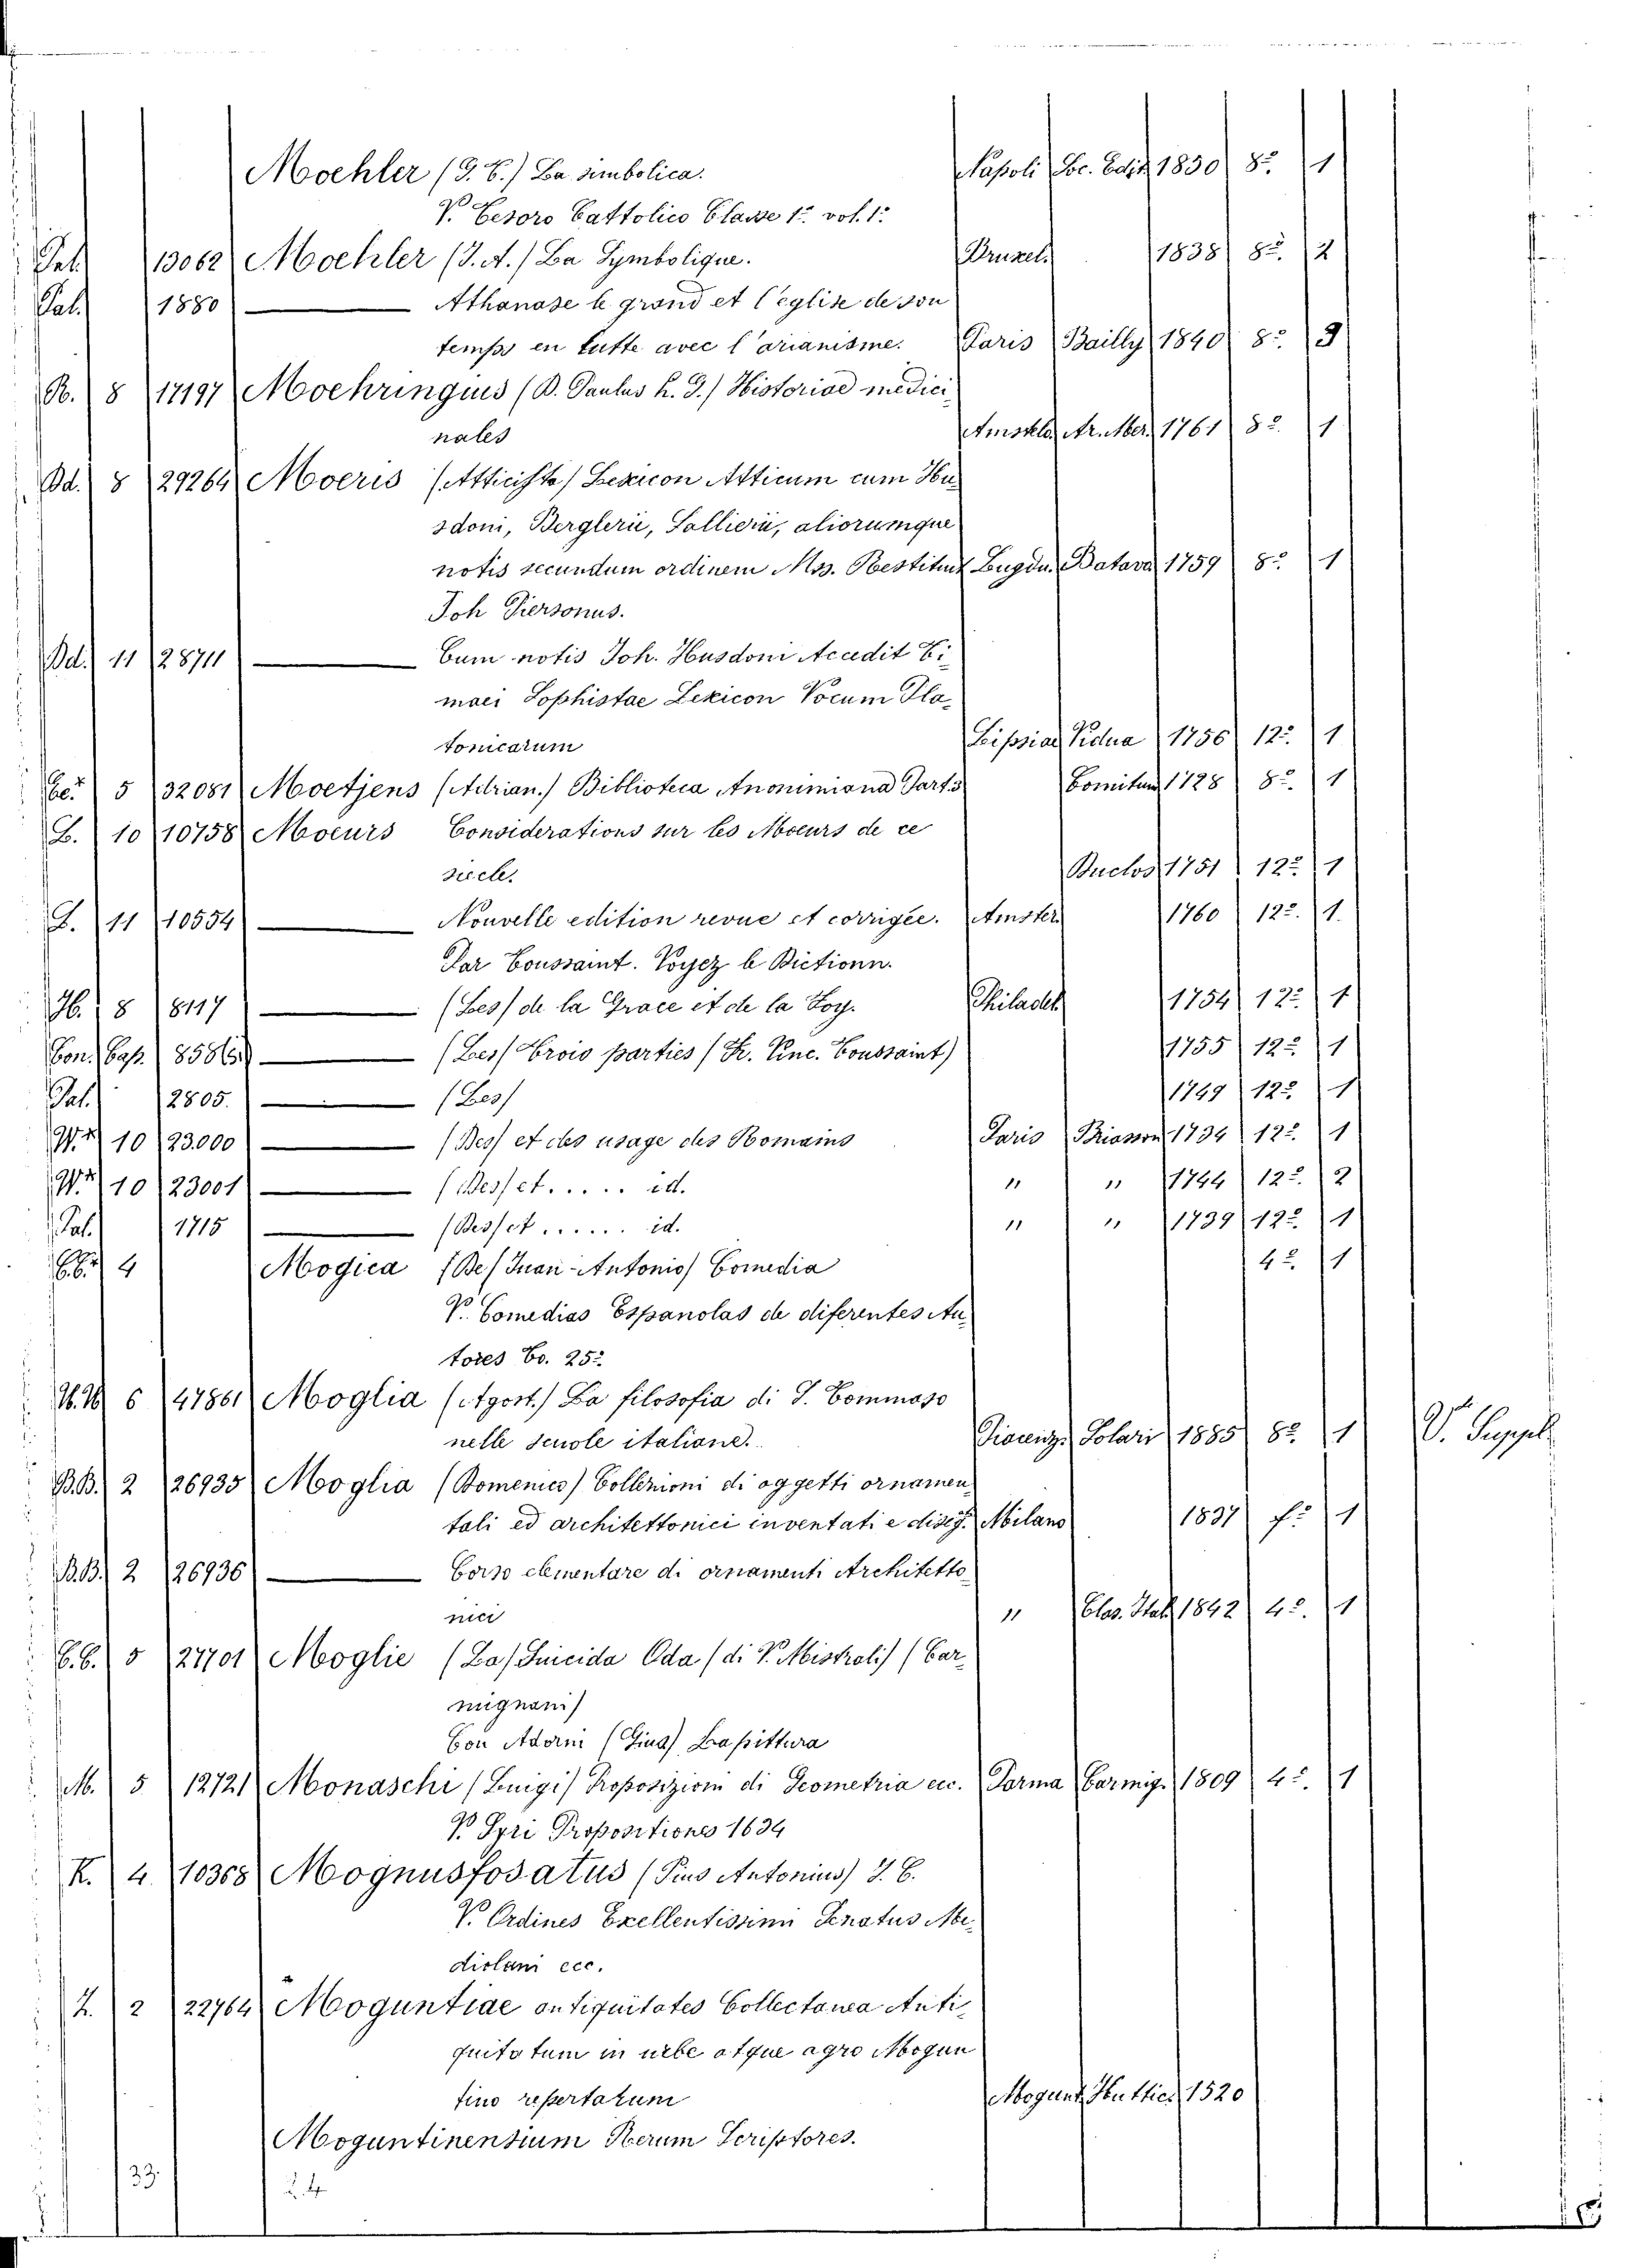 Moehler (G. B.) La simbolica. Napoli Soc. Edit. 1850 8º. 1
V. Tesoro Cattolico Classe 1ª. vol. 1º.
Pal. 13062 Moehler (J. A.) La Symbolique. Bruxel. 1838 8º. 2
Pal. 1880 Athanase le grand et l'eglise de son
temps en lutte avec l'arianisme. Paris Bailly 1840 8º. 3
R. 8 17197 Moehringius (D. Paulus h. G.) Historiae medici¬
nales Amstela Ar. Mer. 1761 8º. 1
Dd. 8 29264 Moeris (Atticista) Lexicon Atticum cum Hu¬
sdoni, Bergleri, Sallierii, aliorumque
notis secundum ordinem Mss. Restituit Lugdu. Batava 1759 8º. 1
Joh Piersonus.
Dd. 11 28711 Cum notis Joh. Husdoni Accedit Ti¬
maei Sophistae Lexicon Vocum Pla¬
tonicarum Lipsiae Vidua 1756 12º. 1
5 32081 Moetjens (Adrian.) Biblioteca Anonimiana Part. 3 Comitum 1728 8º. 1
10 10758 Moeurs Considerations sur les Moeurs de ce
siecle. Duclos 1751 12º. 1
11 10554 Nouvelle edition revue et corrigée. Amster. 1760 12º. 1.
Par Toussaint. Voyez le Dictionn.
H. 8 8117 (Les) de la Grace et de la Foy. Philadel. 1754 12º. 1
Con. Cap. 8586 (Les) Trois parties (Fr. Vinc. Toussaint) 1755 12º. 1
Pal. 2805. (Les) 1749 12º. 1
10 23.000 (Des) et des usage des Romains Paris Briasson 1734 12º. 1
10 23001 (Des) et ..... id. " " 1744 12º. 2
Pal. 1715 (Des) et ...... id. " " 1739 12º. 1
4 Mogica (De) Juan-Antonio) Comedia 4º. 1
V. Comedias Espanolas de diferentes Au¬
tores To. 25º.
6 47861 Moglia (Agost.) La filosofia di S. Tommaso
nelle scuole italiane. Piacenza Solari 1885 8º. 1 V. Suppl.
B.B. 2 26935 Moglia (Domenico) Collezioni di oggetti ornamen¬
tali ed architettonici inventati e diseg. Milano 1837 fº. 1
B.B. 2 26936 Corso elementare di ornamenti Architetto¬
nici " Clas. Ital. 1842 4º. 1
C.C. 5 27701 Moglie (La) Suicida Oda (di V. Mistrali) (Car¬
mignani)
Con Adorni (Gius) La pittura
M. 5 12721 Monaschi (Luigi) Proposizioni di Geometria ecc. Parma Carmig. 1809 4º. 1
V. Syri Propositiones 1634
K. 4 10368 Mognusfosatus (Pius Antonius) J. C.
V. Ordines Exellentissimi Senatus Me¬
diolani ecc.
2 22764 Moguntiae antiquitates Collectanea Anti¬
quitatum in urbe atque agro Mogun
tino repertarum Mogunt. Huttich. 1520
Moguntinensium Rerum Scriptores.
33. 24